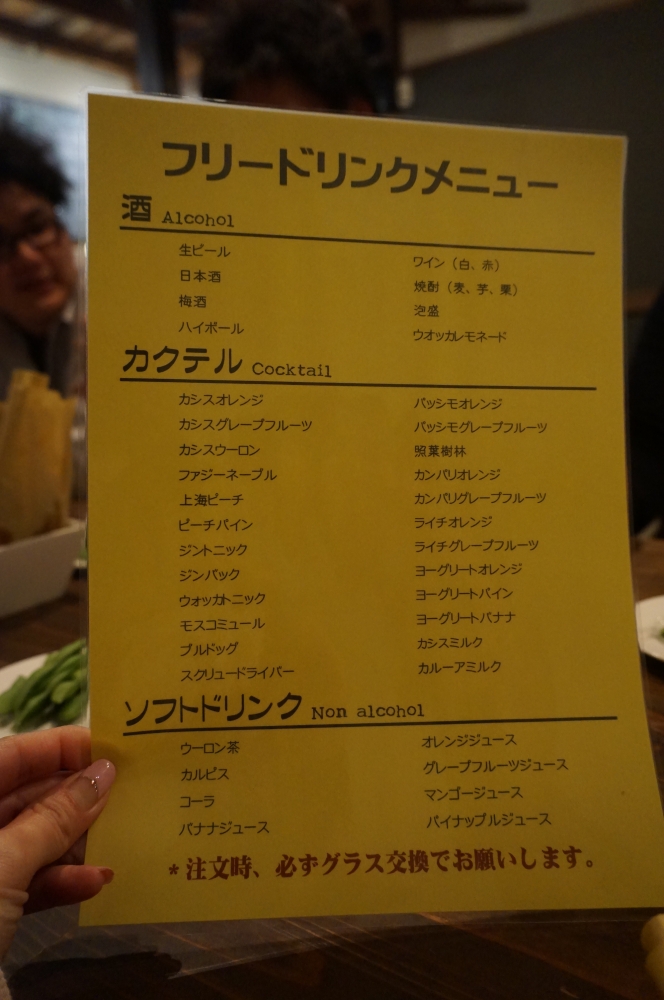 フリードリンクメニュー
酒 Alcohol
生ビール
日本酒
梅酒
ハイボール
ワイン（白、赤）
焼酎（麦、芋、栗）
泡盛
ウオッカレモネード
カクテル Cocktail
カシスオレンジ
カシスグレープフルーツ
カシスウーロン
ファジーネーブル
上海ピーチ
ピーチパイン
ジントニック
ジンバック
ウォッカトニック
モスコミュール
ブルドッグ
スクリュードライバー
パッシモオレンジ
パッシモグレープフルーツ
照葉樹林
カンパリオレンジ
カンパリグレープフルーツ
ライチオレンジ
ライチグレープフルーツ
ヨーグリートオレンジ
ヨーグリートパイン
ヨーグリートバナナ
カシスミルク
カルーアミルク
ソフトドリンク Non alcohol
ウーロン茶
カルピス
コーラ
バナナジュース
オレンジジュース
グレープフルーツジュース
マンゴージュース
パイナップルジュース
*注文時、必ずグラス交換でお願いします。